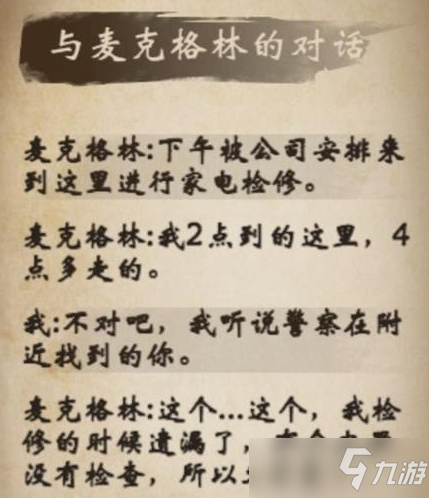 与麦克格林的对话
麦克格林:下午被公司安排来
到这里进行家电检修。
麦克格林:我2点到的这里，4
点多走的。
我:不对吧，我听说警察在附
近找到的你。
麦克格林:这个...这个，我检
修的时候遗漏了，有个
没有检查，所以
九游